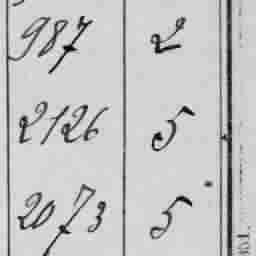 987 2
2126 5
2073 5